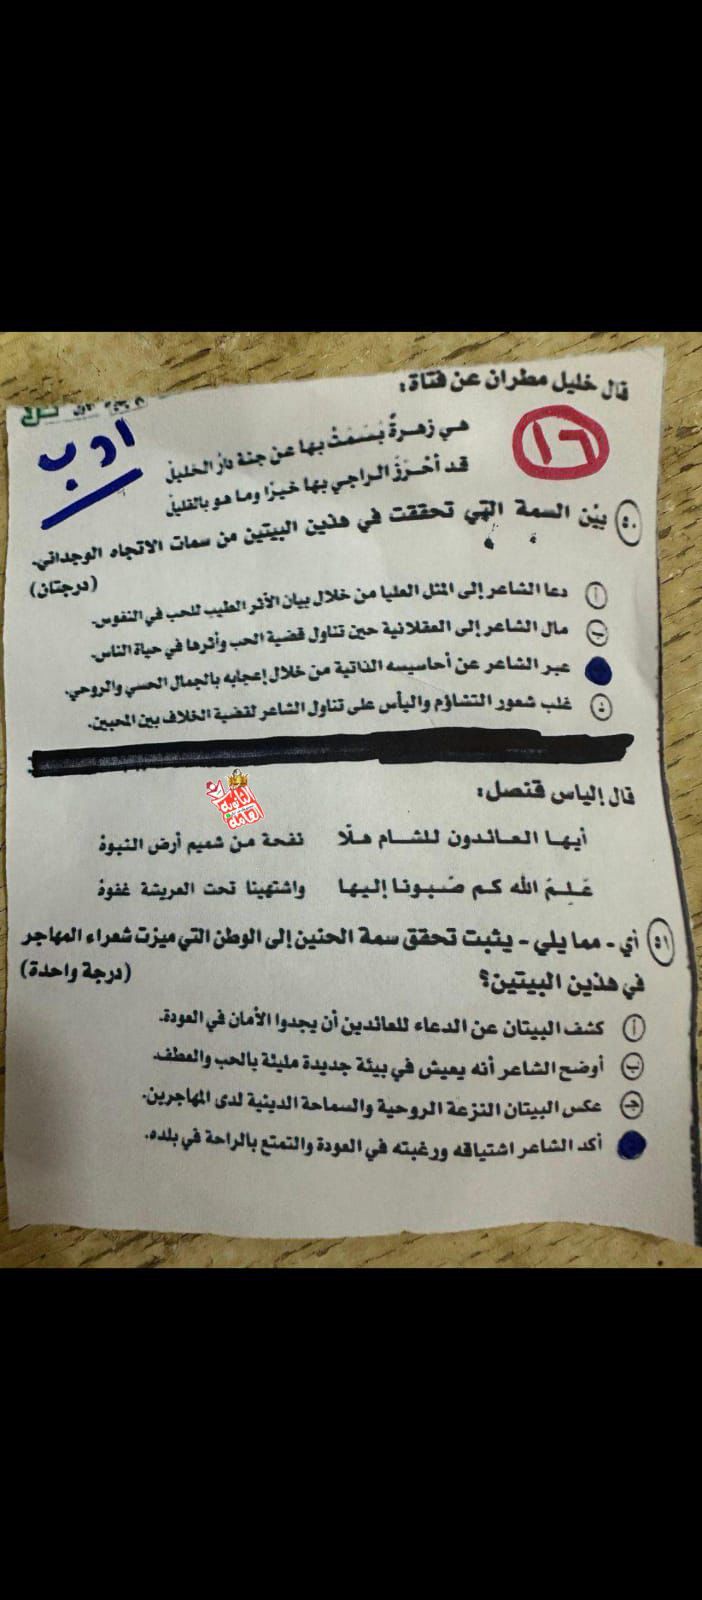 قال خليل مطران عن فتاة:
١٦
ادب
هي زهرةٌ بَسَمَتْ بها عن جنة دارُ الخليلْ
قد أحْرَزَ الراجي بها خيرًا وما هو بالقليلْ
٥٠ بيّن السمة التي تحققت في هذين البيتين من سمات الاتجاه الوجداني.
(درجتان)
أ دعا الشاعر إلى المثل العليا من خلال بيان الأثر الطيب للحب في النفوس.
ب مال الشاعر إلى العقلانية حين تناول قضية الحب وأثرها في حياة الناس.
عبر الشاعر عن أحاسيسه الذاتية من خلال إعجابه بالجمال الحسي والروحي.
د غلب شعور التشاؤم واليأس على تناول الشاعر لقضية الخلاف بين المحبين.
الثانوية العامة
قال إلياس قنصل:
أيها العائدون للشام هلّا نفحة من شميم أرض النبوة
عَلِمَ الله كم صَبونا إليها واشتهينا تحت العريشة غفوة
٥١ أي - مما يلي - يثبت تحقق سمة الحنين إلى الوطن التي ميزت شعراء المهاجر
في هذين البيتين؟ (درجة واحدة)
أ كشف البيتان عن الدعاء للعائدين أن يجدوا الأمان في العودة.
ب أوضح الشاعر أنه يعيش في بيئة جديدة مليئة بالحب والعطف.
ج عكس البيتان النزعة الروحية والسماحة الدينية لدى المهاجرين.
أكد الشاعر اشتياقه ورغبته في العودة والتمتع بالراحة في بلده.